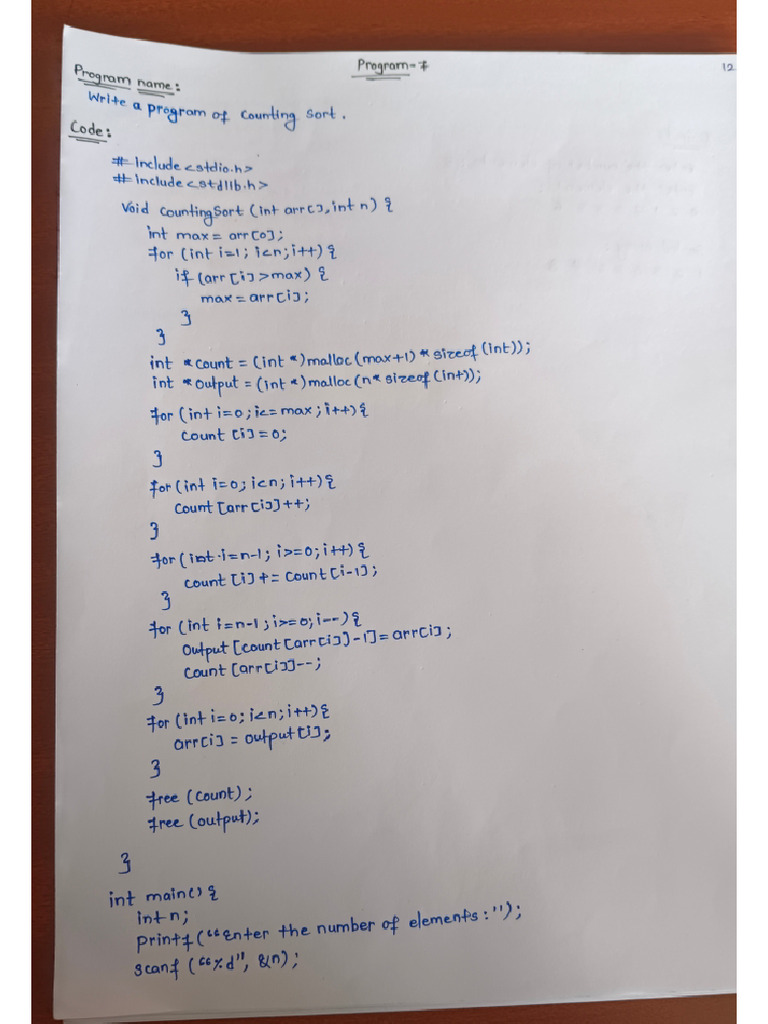 Program-7
12
Program name:
Write a program of counting sort.
Code:
# include <stdio.h>
# include <stdlib.h>
void countingSort (int arr[], int n) {
int max = arr[0];
for (int i=1; i<n; i++) {
if (arr[i] > max) {
max = arr[i];
}
}
int *count = (int *)malloc(max+1) * sizeof(int));
int *output = (int *)malloc(n* sizeof(int));
for (int i=0; i<= max; i++) {
count [i] = 0;
}
for (int i=0; i<n; i++) {
count [arr[i]]++;
}
for (int i=n-1; i>=0; i++) {
count [i] += count[i-1];
}
for (int i=n-1; i>=0; i--) {
output [count[arr[i]]-1] = arr[i];
count [arr[i]]--;
}
for (int i=0; i<n; i++) {
arr[i] = output[i];
}
free (count);
free (output);
}
int main() {
int n;
printf("Enter the number of elements:");
scanf ("%d", &n);